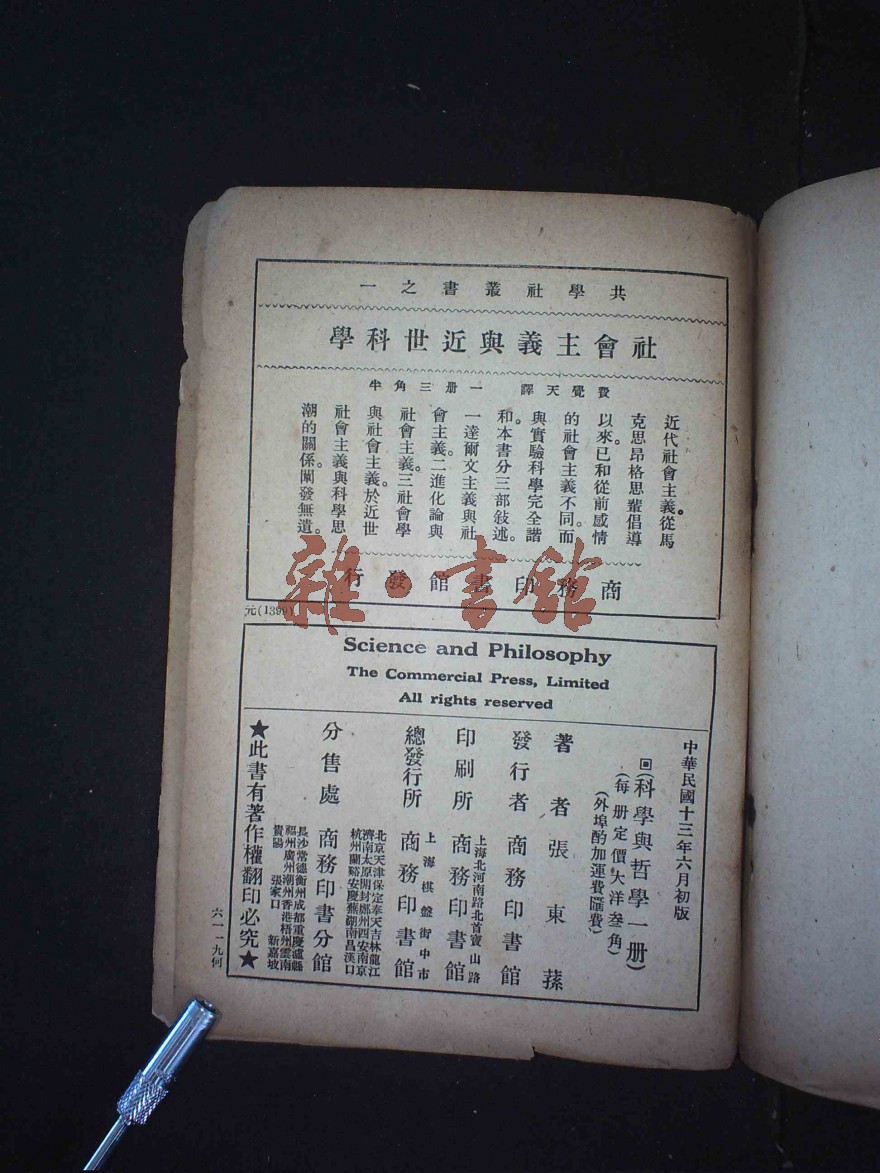 共學社叢書之一
社會主義與近世科學
費覺天譯 一册三角半
近代社會主義。從馬
克思昂格思輩倡導
以來。已和從前感情
的社會主義不同。而
與實驗科學完全諧
和。本書分三部敍述。
一達爾文主義與社
會主義。二進化論與
社會主義。三社會學
與社會主義。於近世
社會主義與科學思
潮的關係。闡發無遺。
商務印書館發行
元(1399)
雜·書館
Science and Philosophy
The Commercial Press, Limited
All rights reserved
中華民國十三年六月初版
回(科學與哲學一册)
(每册定價大洋叁角)
(外埠酌加運費匯費)
著者 張東蓀
發行者 商務印書館
上海北河南路北首寶山路
印刷所 商務印書館
上海棋盤街中市
總發行所 商務印書館
北京天津保定奉天吉林龍江
濟南太原開封鄭州西安南京
杭州蘭谿安慶蕪湖南昌漢口
分售處 商務印書分館
長沙常德衡州成都重慶瀘縣
福州廣州潮州香港梧州雲南
貴陽 張家口 新嘉坡
★此書有著作權翻印必究★
六一一九何